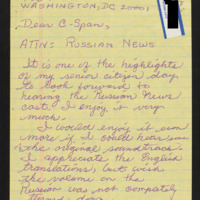 WASHINGTON, DC 20001,
Dear C-Span,
ATTN: RUSSIAN NEWS
It is one of the highlights
of my senior citizen day
to look forward to
hearing the Russian News
cast. I enjoy it very
much.
I would enjoy it even
more if I could hear
the original soundtrack.
I appreciate the English
translations, but wish
the volume on the
Russian was not completely
turned down